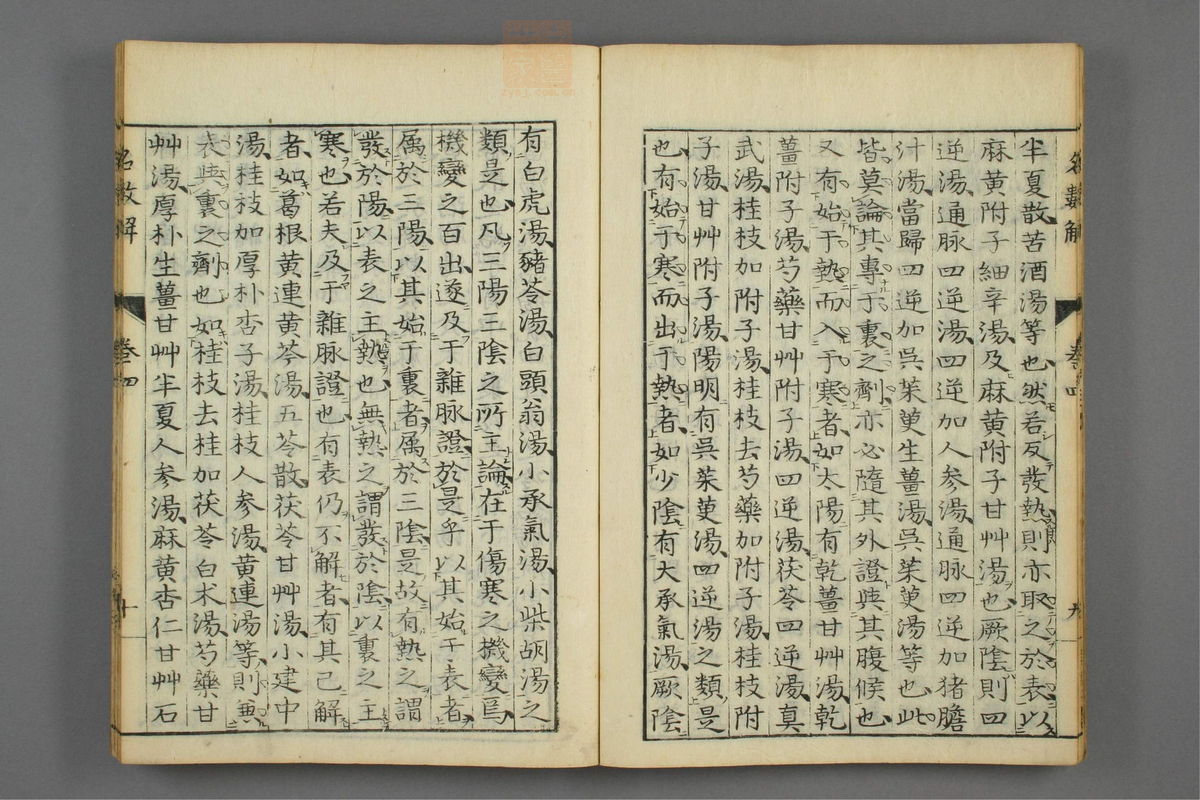 半夏散苦酒湯等也然若反發熱則亦取之於表以
麻黄附子細辛湯及麻黄附子甘艸湯也厥陰則四
逆湯通脉四逆湯四逆加人参湯通脉四逆加猪膽
汁湯當歸四逆加呉茱萸生薑湯呉茱萸湯等也此
皆莫論其專于裏之劑亦必隨其外證與其腹候也
又有始于熱而入于寒者如太陽有乾薑甘艸湯乾
薑附子湯芍藥甘艸附子湯四逆湯茯苓四逆湯真
武湯桂枝加附子湯桂枝去芍藥加附子湯桂枝附
子湯甘艸附子湯陽明有呉茱萸湯四逆湯之類是
也有始于寒而出于熱者如少陰有大承氣湯厥陰
名數解 卷四 九
有白虎湯豬苓湯白頭翁湯小承氣湯小柴胡湯之
類是也凡三陽三陰之所主論在于傷寒之機變焉
機變之百出遂及于雜脉證於是乎以其始于表者
属於三陽以其始于裏者属於三陰是故有熱之謂
發於陽以表之主熱也無熱之謂發於陰以裏之主
寒也若夫及于雜脉證也有表仍不解者有其已解
者如葛根黄連黄芩湯五苓散茯苓甘艸湯小建中
湯桂枝加厚朴杏子湯桂枝人参湯黄連湯等則兼
表與裏之劑也如桂枝去桂加茯苓白朮湯芍藥甘
艸湯厚朴生薑甘艸半夏人参湯麻黄杏仁甘艸石
名數解 卷四 十
zysj.com.cn